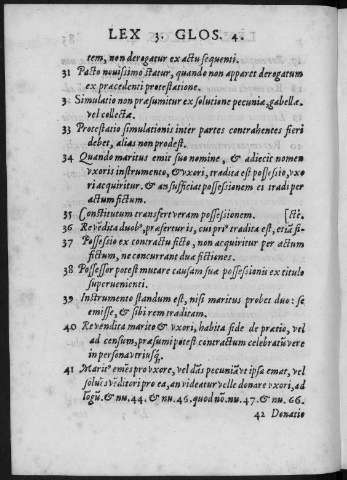 LEX 3. GLOS. 4.
tem, non derogatur ex actu sequenti.
31 Pacto nouissimo statur, quando non apparet derogatum
ex præcedenti protestatione.
3 Simulatio non præsumitur ex solutione pecuniæ, gabellæ
vel collectæ.
33 Protestatio simulationis inter partes contrahentes fieri
debet, alias non prodest.
34 Quando maritus emit suo nomine, & adiecit nomen
vxoris instrumento, & vxori, tradita est possessio, vxo
ri acquiritur. & an sufficiat possessionem ei tradi per
actum fictum.
35 Constitutum transfert veram possessionem. [ctè.
36 Re vẽdita duobꝰ, præfertur is, cui priꝰ tradita est, etiã fi-
37 Possessio ex contractu ficto, non acquiritur per actum
fictum, ne concurrant duæ fictiones.
38 Possessor potest mutare causam suæ possessionis ex titulo
superuenienti.
39 Instrumento standum est, nisi maritus probet duo: se
emisse, & sibi rem traditam.
40 Re vendita marito & vxori, habita fide de prætio, vel
ad censum, præsumi potest contractum celebratũ vere
in persona vtriusq́;
41 Maritꝰ emẽs pro vxore, vel dãs pecuniã vt ipsa emat, vel
soluẽs vẽditori pro ea, an videatur velle donare vxori, ad
lõgũ. & nu. 44. & nu. 45. quod uõ. nu. 47. & nu. 66.
42 Donatio